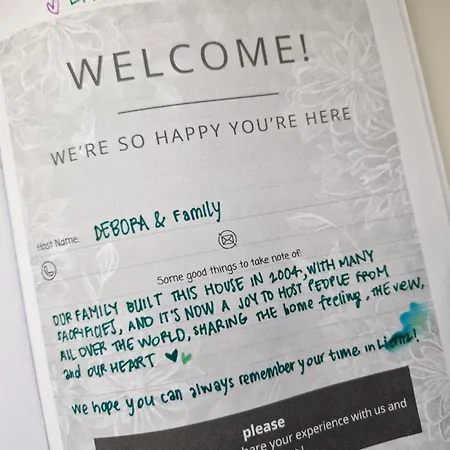 WELCOME!
WE'RE SO HAPPY YOU'RE HERE
Host Name: DEBORA & Family
Some good things to take note of:
OUR FAMILY BUILT THIS HOUSE IN 2004, WITH MANY
SACRIFICIES, AND IT'S NOW A JOY TO HOST PEOPLE FROM
All OVER THE WORLD, SHARING THE home feeling, THE VIEW,
and OUR HEART
We hope you can always remember your time in Lierna!
please
hare your experience with us and